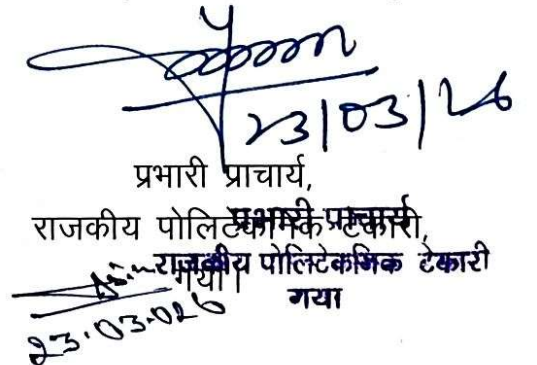 23/03/26
प्रभारी प्राचार्य,
राजकीय पोलिटेकनिक टेकारी,
गया।
प्रभारी प्राचार्य
राजकीय पोलिटेकनिक टेकारी
गया
23.03.026